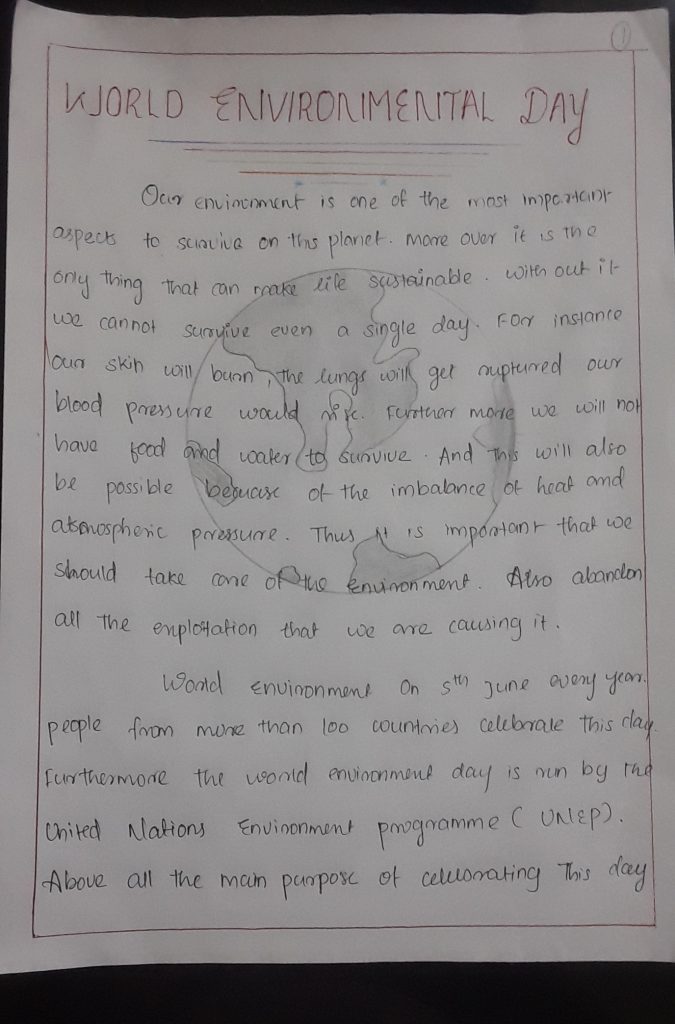 1
WORLD ENVIRONMENTAL DAY
Our environment is one of the most important
aspects to survive on this planet. More over it is the
only thing that can make life sustainable. With out it
we cannot survive even a single day. For instance
our skin will burn, the lungs will get ruptured our
blood pressure would rise. Further more we will not
have food and water to survive. And this will also
be possible because of the imbalance of heat and
atmospheric pressure. Thus it is important that we
should take care of the environment. Also abandon
all the exploitation that we are causing it.
World Environment On 5th June every year.
people from more than 100 countries celebrate this day.
Furthermore the world environment day is run by the
United Nations Environment programme (UNEP).
Above all the main purpose of celebrating This day